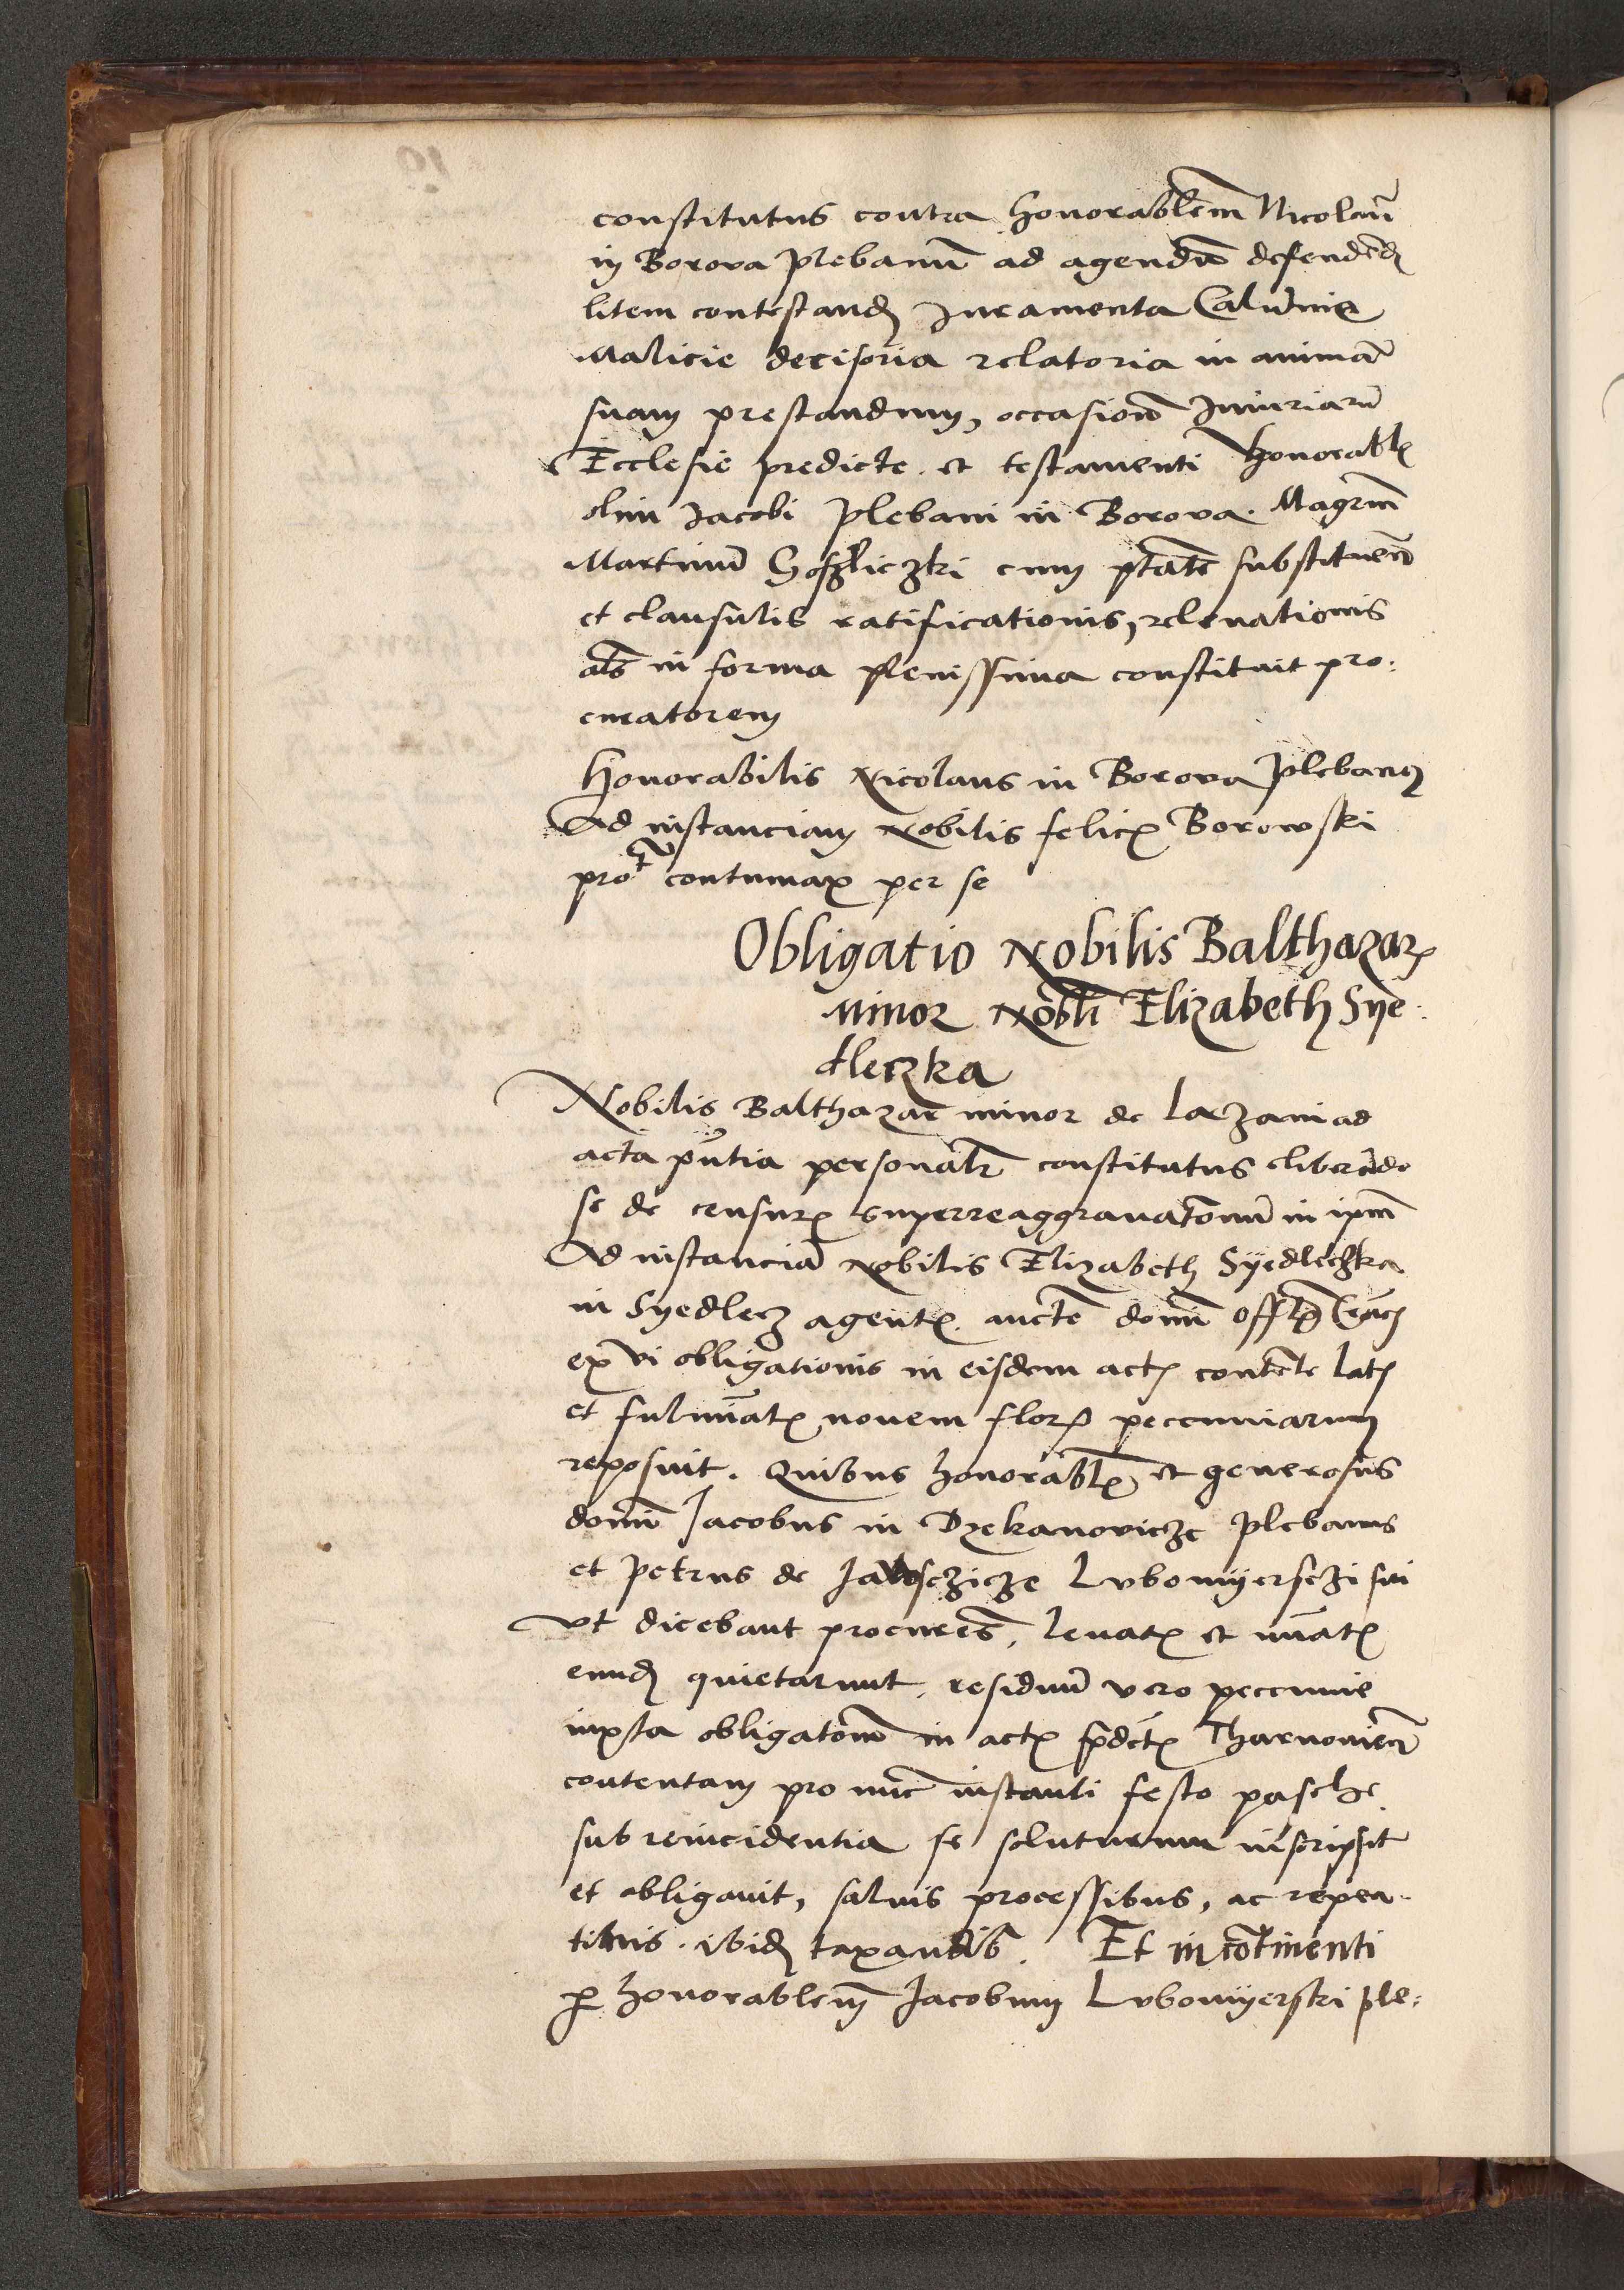 constitutus contra honorablem Nicolaū
in Borova plebanū ad agendū defendēd
litem contestand Iuramenta Calūmnie
Malicie decisoria relatoria in animā
suam prestandum, occasione Iniuriarū
Ecclesie predicte et testamenti honorabl
olim Jacobi plebani in Borova. Magrm̄
Martinū cum ptātē substituen̄
et clausulis ratificationis, relevationis
als̄ in forma plenissima constituit pro:
curatorem
Honorabilis Nicolaus in Borova plebanus
Ad instanciam Nobilis felicis Borowski
prot̄ contumax per se
Obligatio Nobilis Balthazar
minor Nobli Elizabeth Sÿe:
dleczka
Nobilis Balthazar minor de Laczani ad
acta pn̄tia personalr̄ constitutus liberādo
se de censuris superreaggravatoriū in ipm̄
Ad instanciā Nobilis Elizabeth Sÿedleczka
in Syedlecz agentis aucte domī Offlis Crac
ex vi obligationis in eisdem actis contente latis
et fulminatis novem flor peccuniarum
reposuit. Quibus honorablis et generosus
domī Jacobus in Dzekanovicze plebanus
et petrus de Lubomÿersczi sui
ut dicebant procures, levatis et nūatis
eund quietarunt, residuū vero peccunie
iuxta obligatōnē in actis spdctis Tharnovien̄
contentam pro nūc instanti festo pasche
sub reincidentia se soluturum inscripsit
et obligavit, salvis processibus, ac repea
ibid taxandis. Et in continenti
per honorablem Jacobum Lubomÿerski ple: